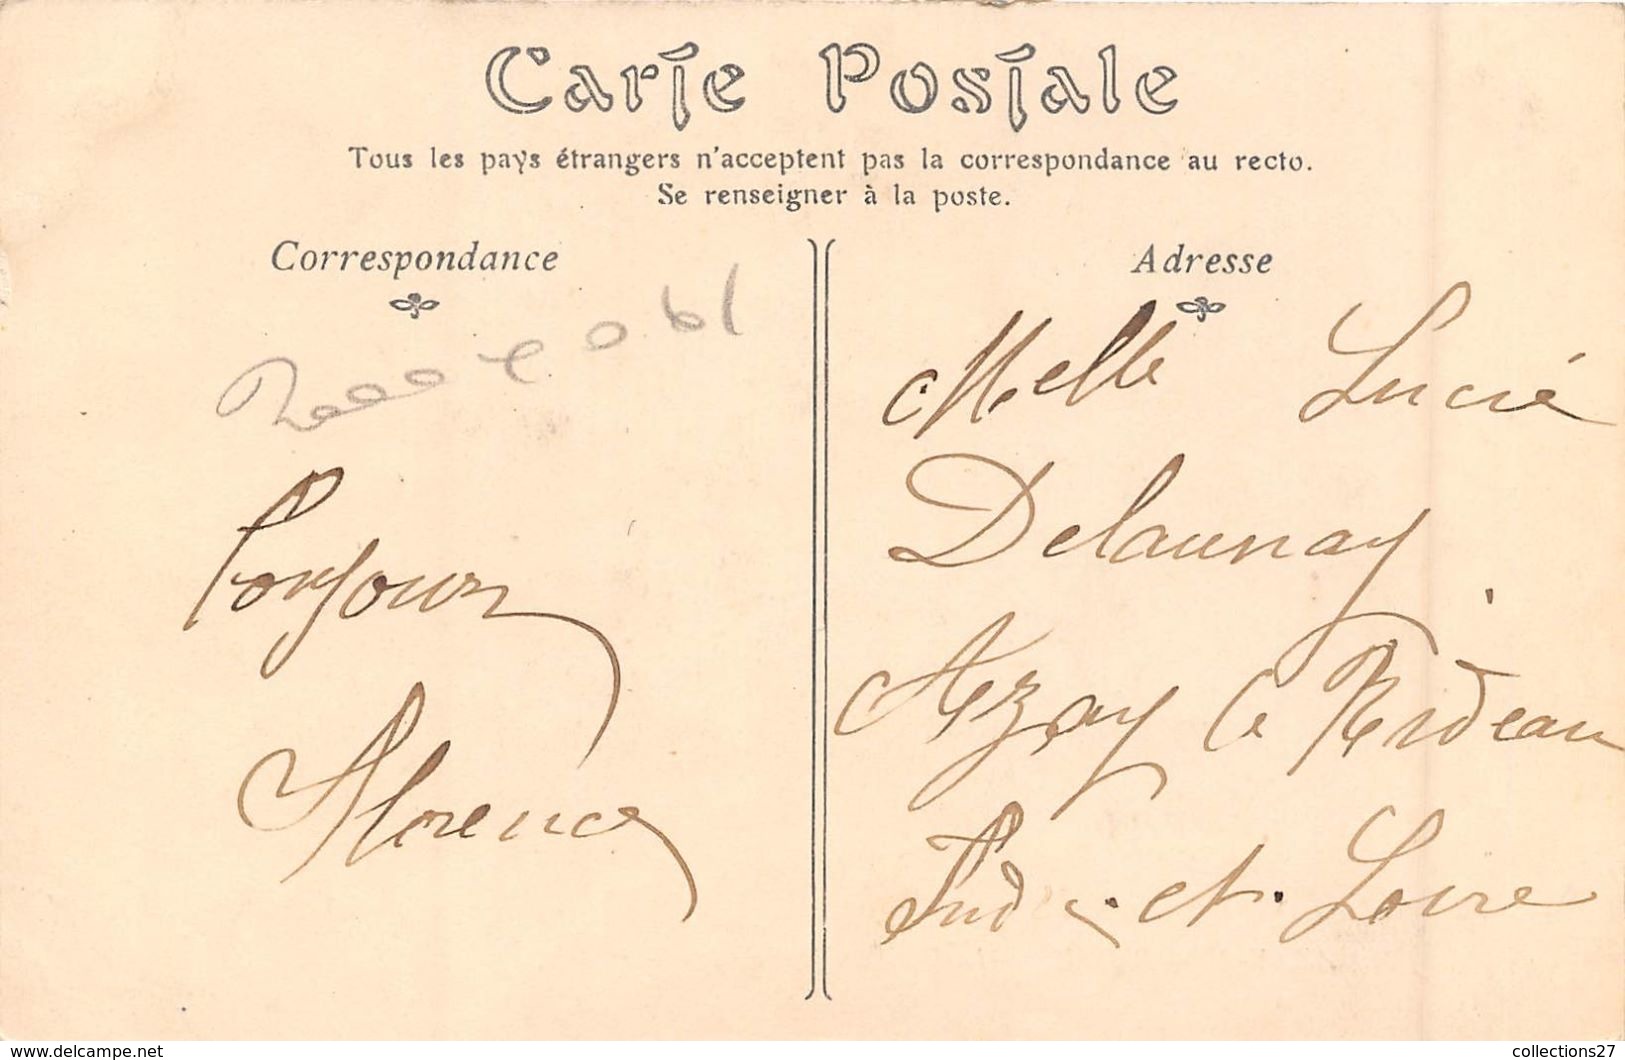 Carte Postale
Tous les pays étrangers n'acceptent pas la correspondance au recto.
Se renseigner à la poste.
Correspondance
Adresse
Florence
Melle Lucie
Delaunay
Azay le Rideau
Indre-et-Loire
www.delcampe.net
collections27